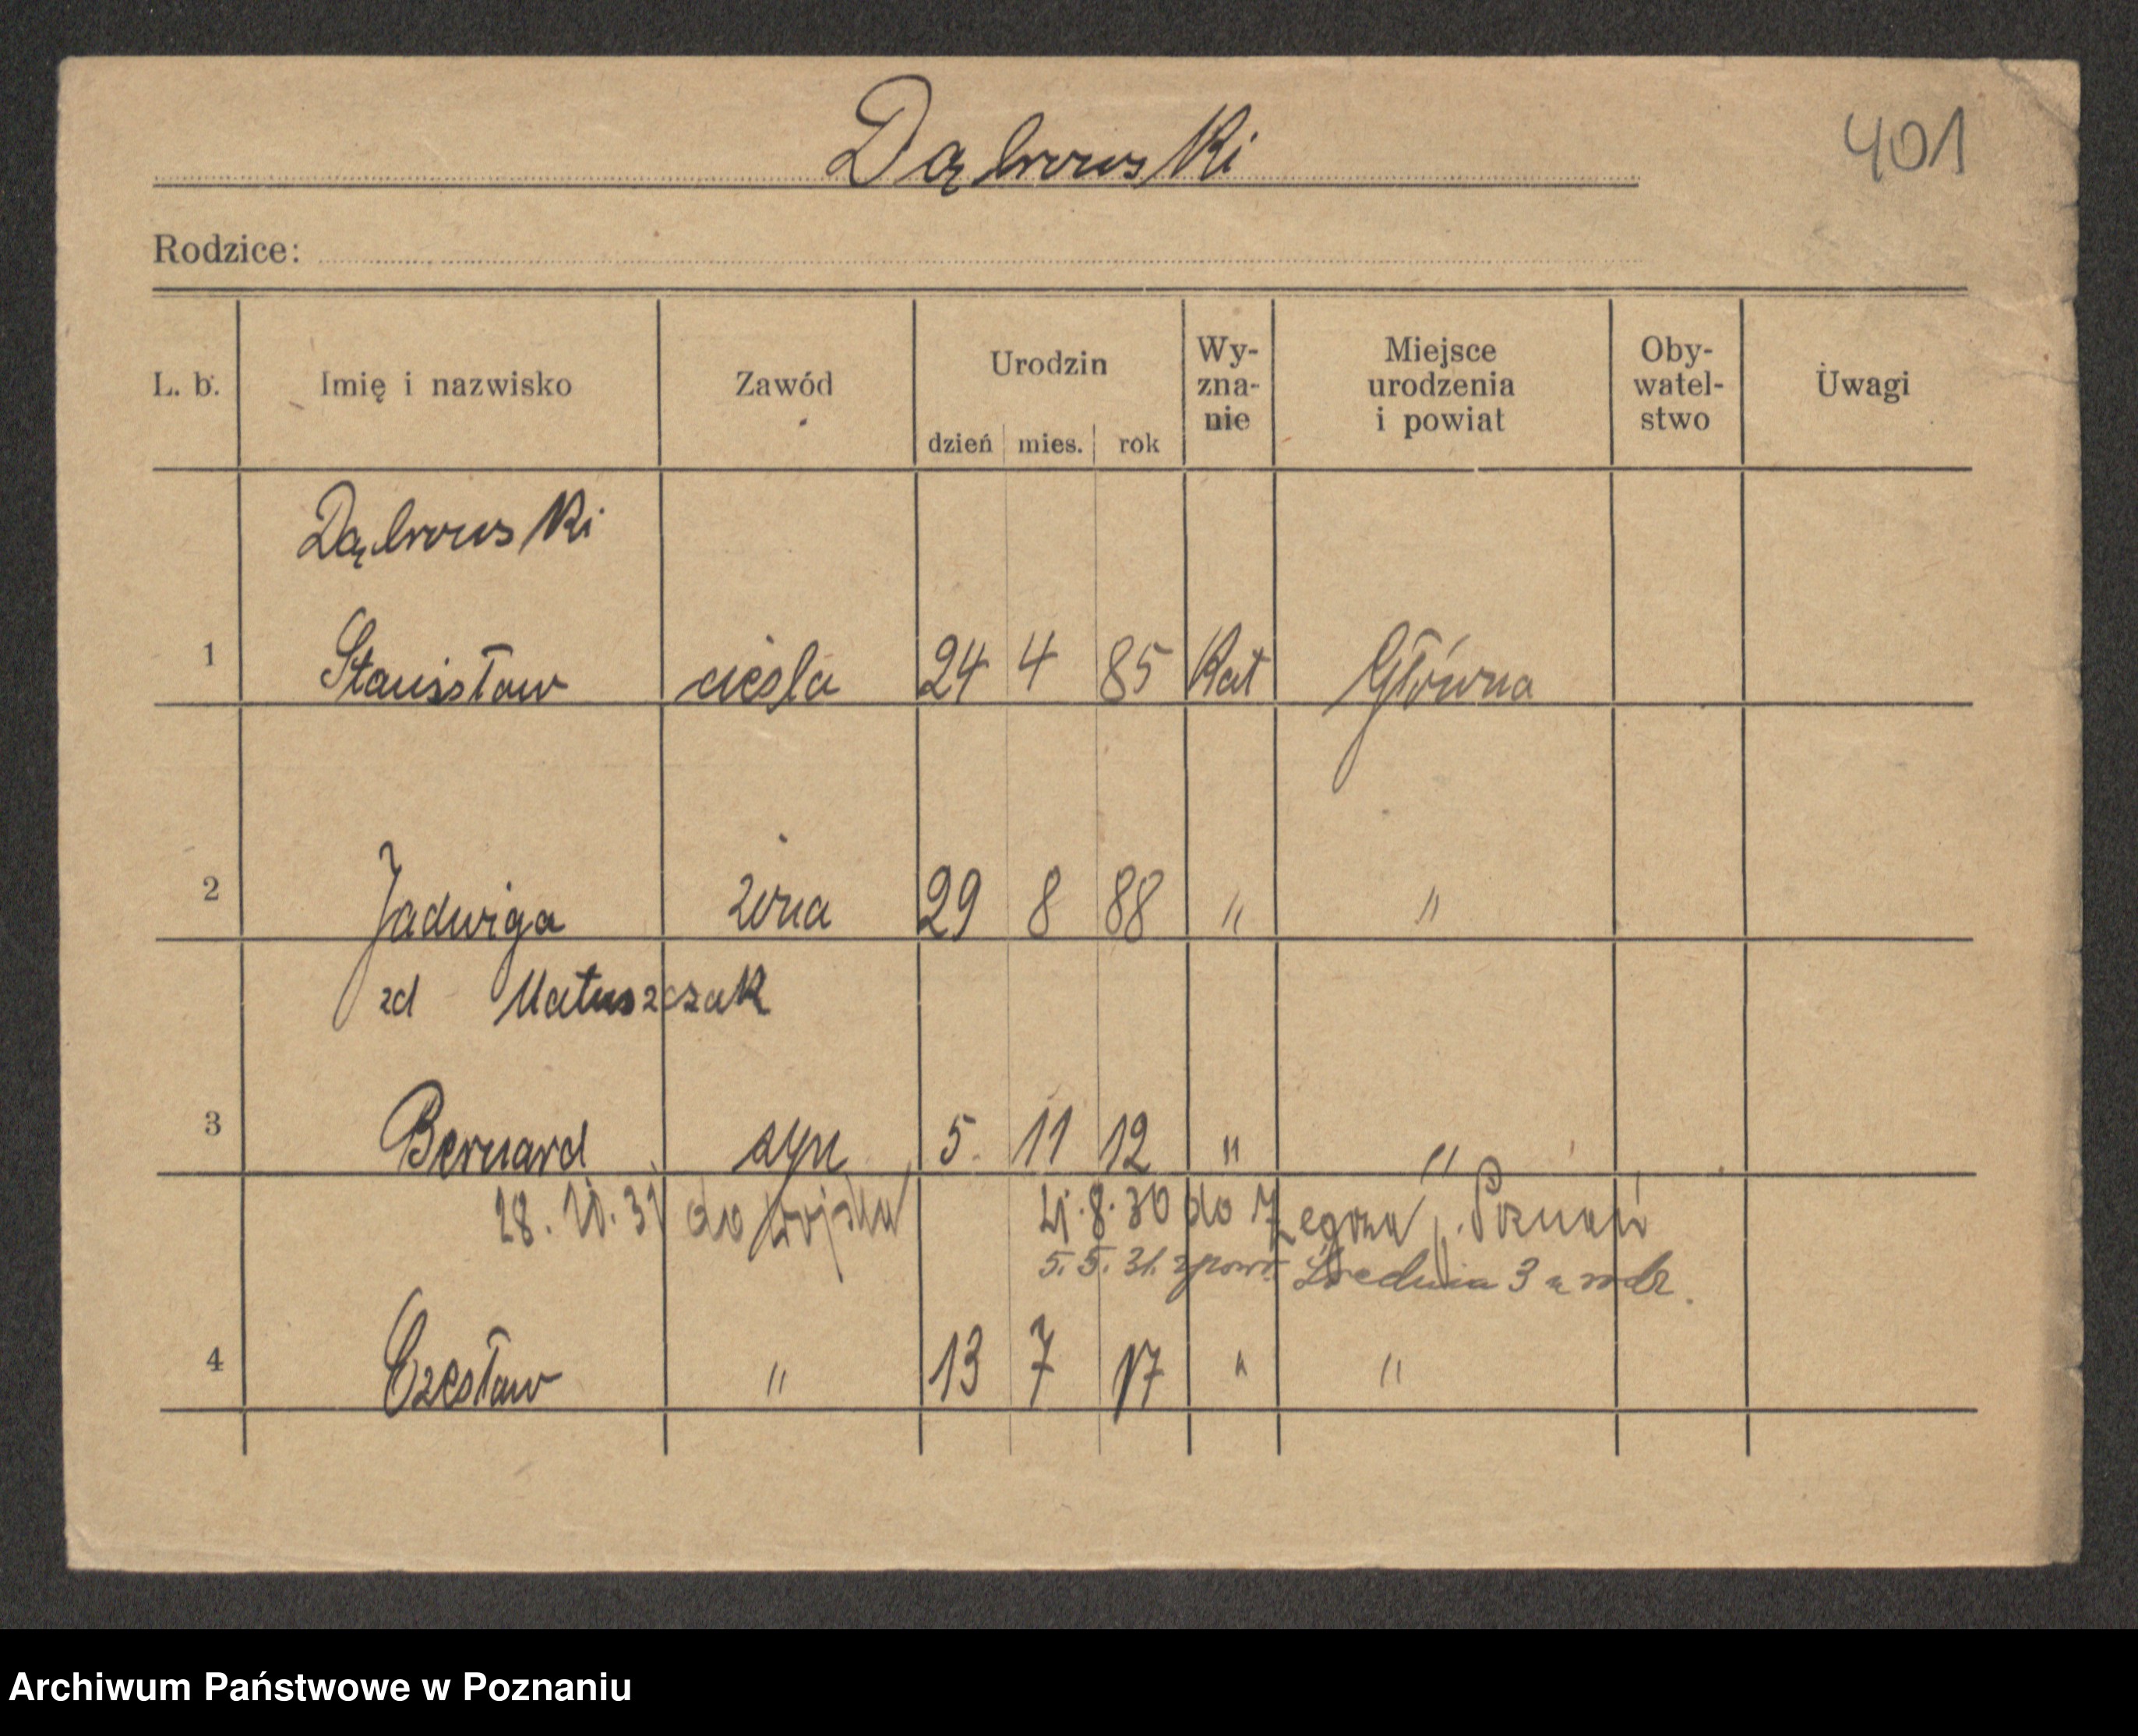 Dąbrowski
401
Rodzice:
L. b. Imię i nazwisko Zawód Urodzin dzień mies. rok Wy-zna-nie Miejsce urodzenia i powiat Oby-watel-stwo Uwagi
Dąbrowski
1 Stanisław cieśla 24 4 85 Kat Główna
2 Jadwiga żona 29 8 88 " "
zd Matuszczak
3 Bernard syn 5. 11 12 " "
28. 10. 31 do wojska 21. 8. 30 do Żegrza, Poznań
5. 5. 31. z powr. Średnia 3 u rodz.
4 Czesław " 13 7 17 " "
Archiwum Państwowe w Poznaniu